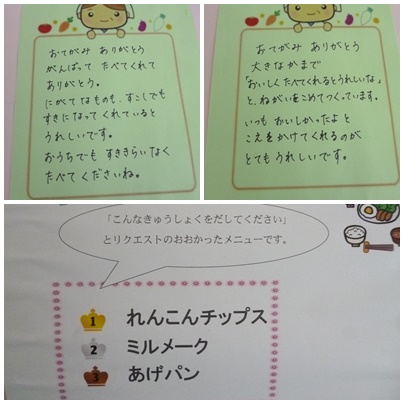 おてがみ ありがとう
がんばって たべてくれて
ありがとう。
にがてなものも、すこしでも
すきになってくれていると
うれしいです。
おうちでも すききらいなく
たべて くださいね。
おてがみ ありがとう
大きな なかまで
「おいしく たべてくれるとうれしいな」
と、ねがいをこめて つくっています。
いつも おいしかったよ と
こえを かけてくれるのが
とても うれしいです。
「こんなきゅうしょくをだしてください」
とリクエストのおおかったメニューです。
1 れんこんチップス
2 ミルメーク
3 あげパン